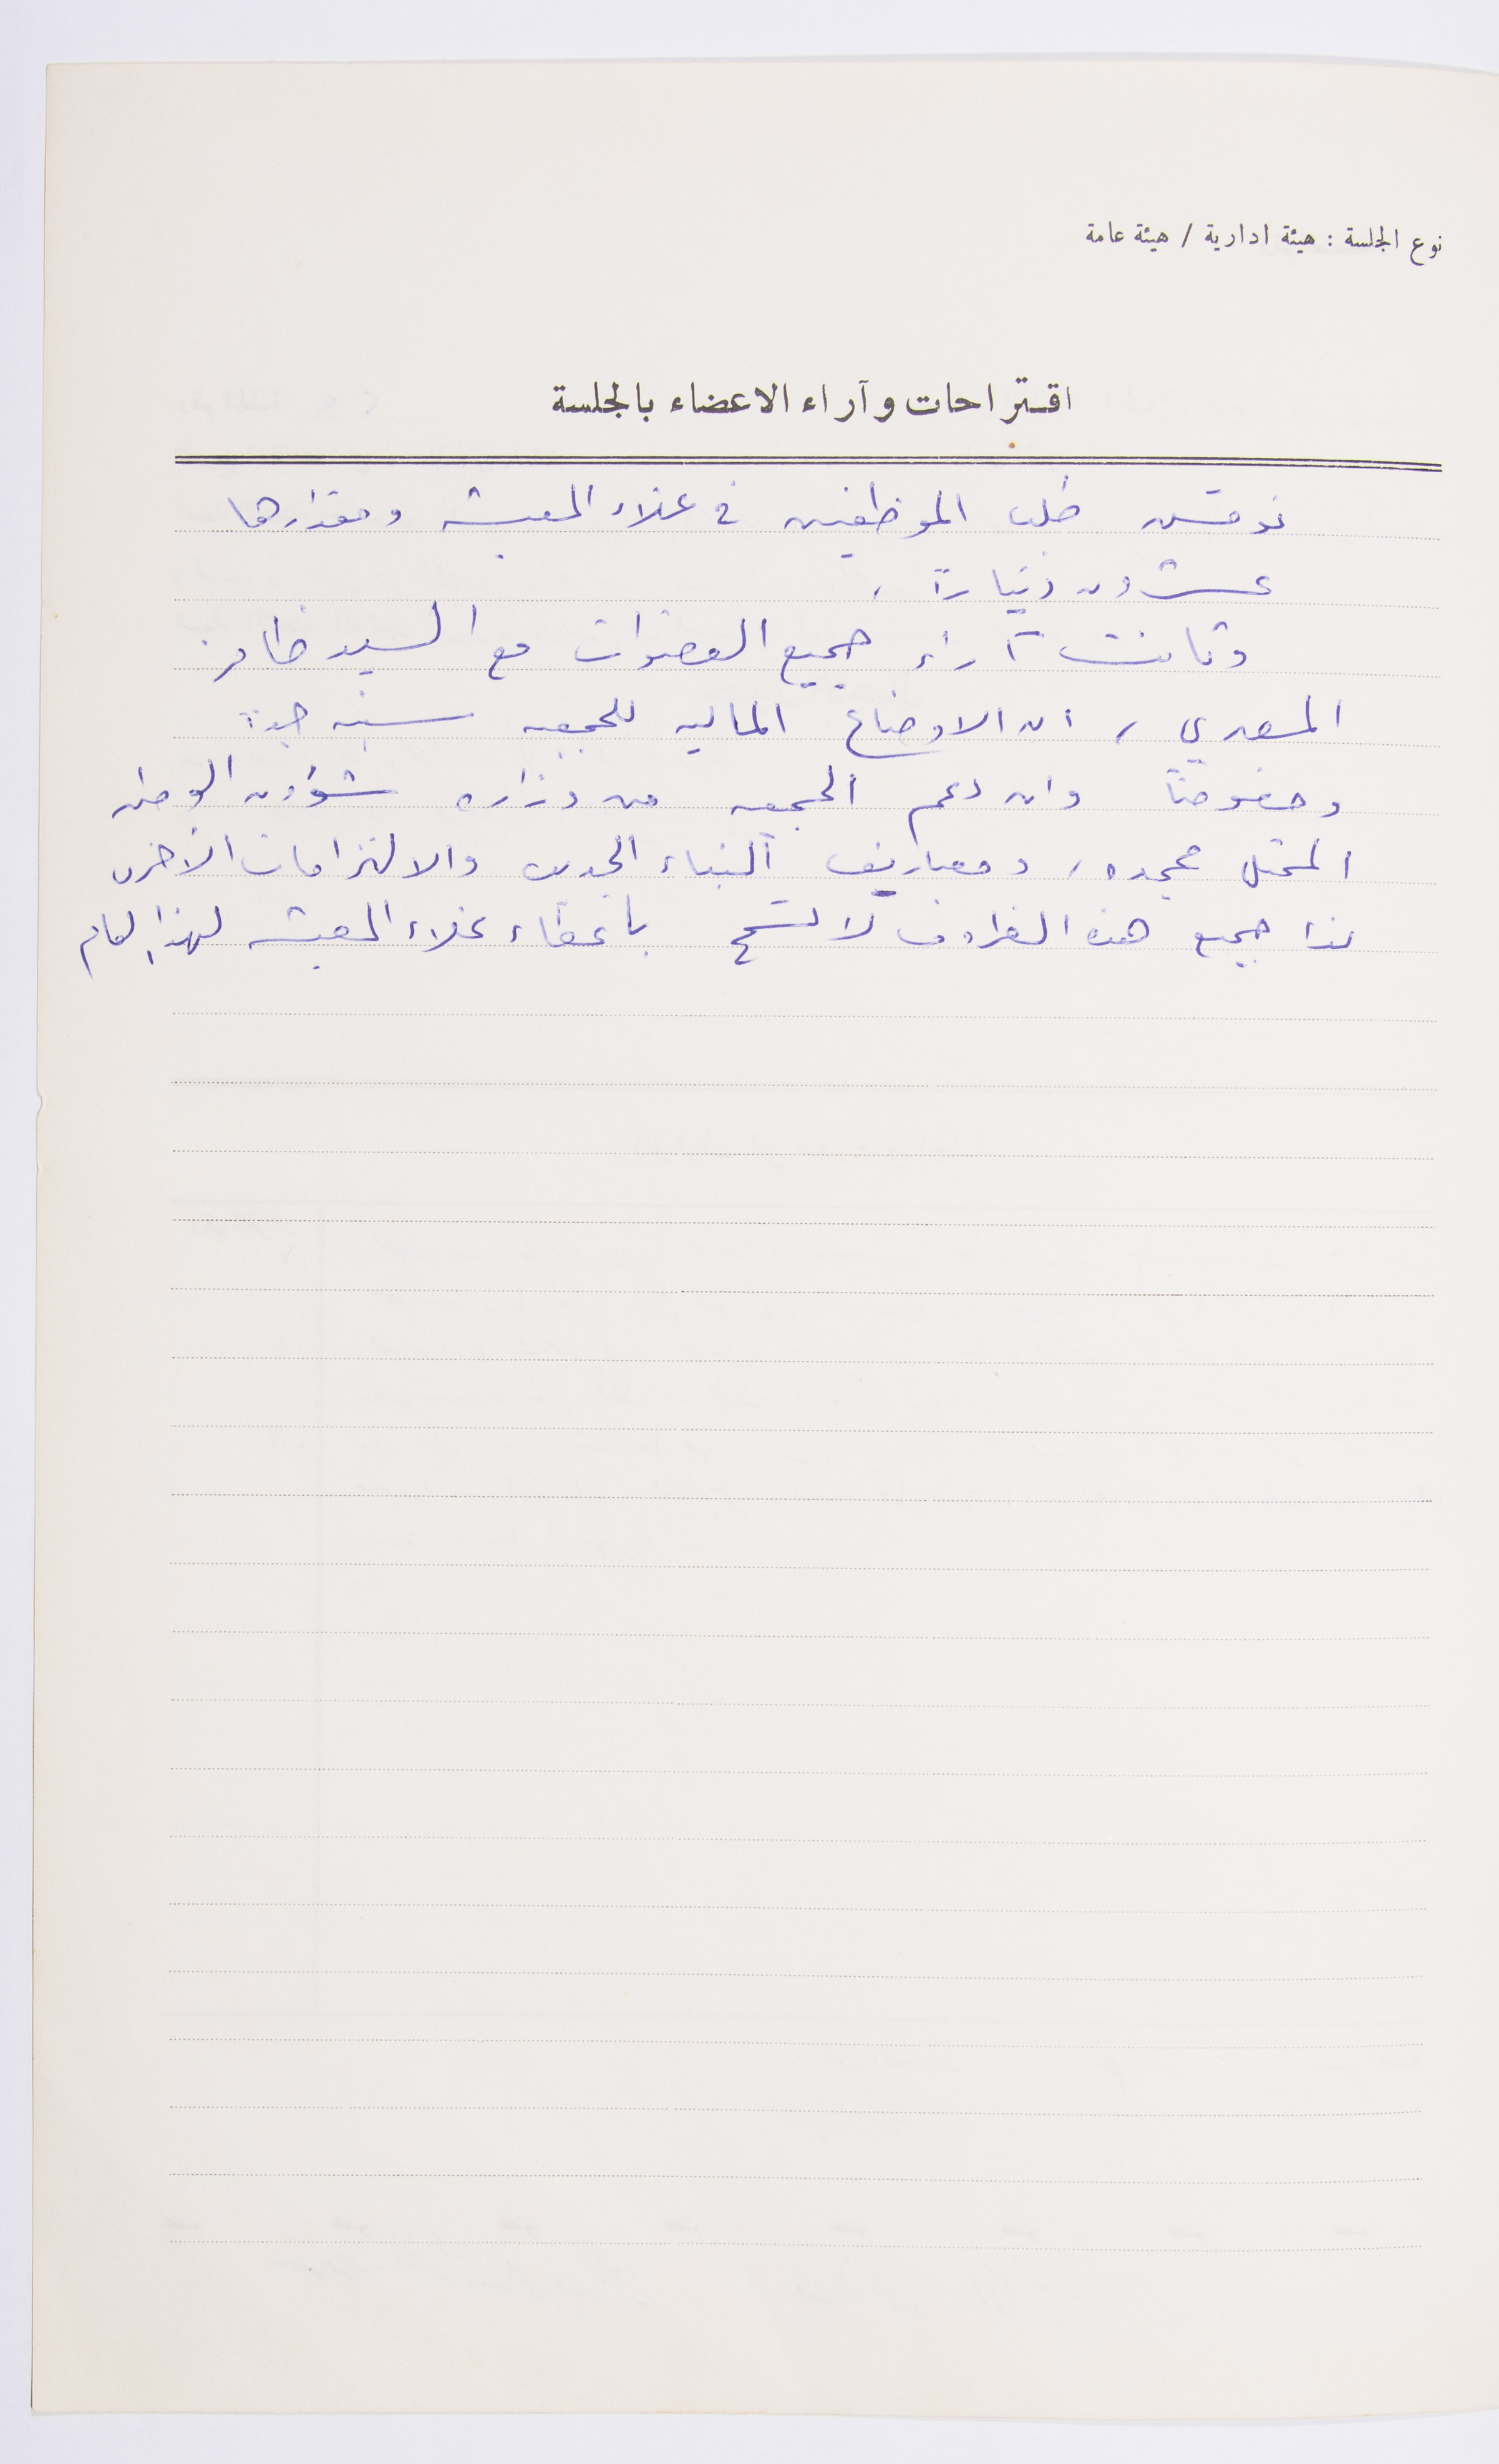 نوع الجلسة : هيئة ادارية / هيئة عامة
اقتراحات وآراء الاعضاء بالجلسة
نوقش طلب الموظفين في غلاء المعيشه ومقدارها
عشرون ديناراً ,
وكانت آراء جميع العضوات مع السيد ظافر
المصري , ان الاوضاع المالية للجمعيه سيئه جداً
وخصوصاً وان دعم الجمعيه من وزاره شؤون الوطن
المحتل مجمده , ومصاريف البناء الجديد والالتزامات الأخرى
لذا جميع هذه الظروف لا تسمح باعطاء غلاء المعيشه لهذا العام